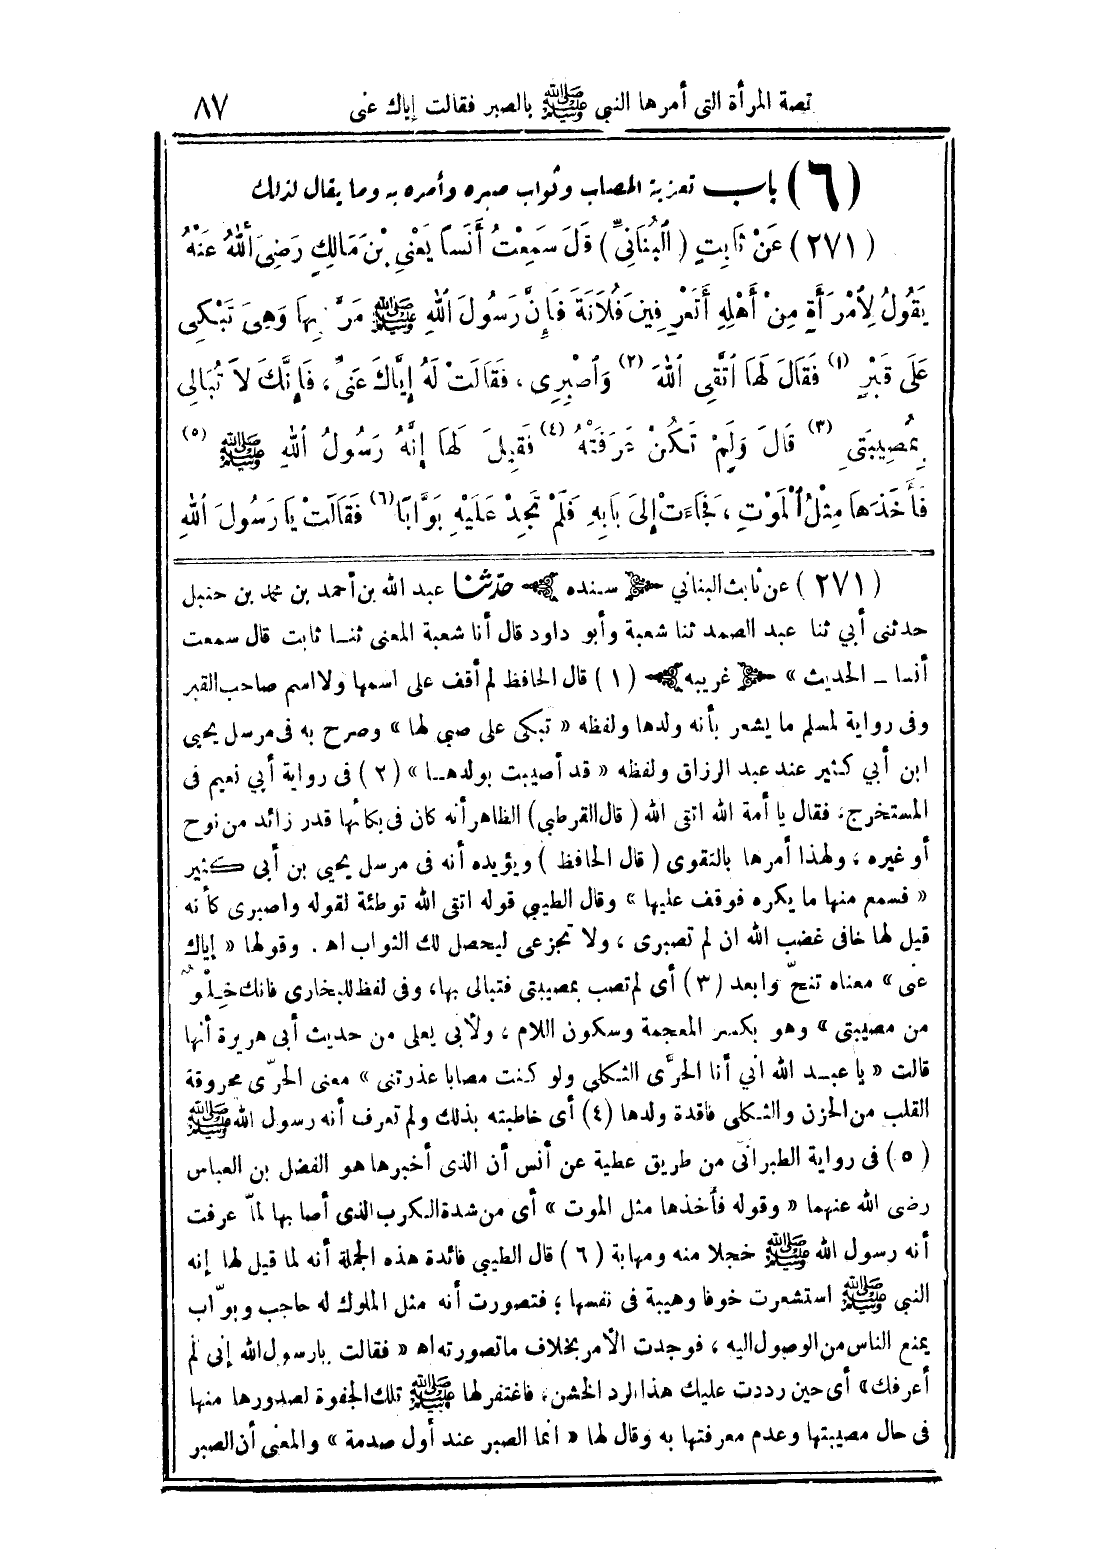 قصة المرأة التى أمرها النبي ﷺ بالصبر فقالت إياك عنى ٨٧
(٦) باب تعزية المصاب وثواب صبره وأمره به وما يقال لذلك
(٢٧١) عَنْ ثَابِتٍ (ٱلْبُنَانِيِّ) قَالَ سَمِعْتُ أَنَسًا يَعْنِي بْنَ مَالِكٍ رَضِيَ ٱللهُ عَنْهُ
يَقُولُ لِاُمْرَأَةٍ مِنْ أَهْلِهِ أَتَعْرِفِينَ فُلَانَةَ فَإِنَّ رَسُولَ ٱللهِ ﷺ مَرَّ بِهَا وَهِيَ تَبْكِي
عَلَى قَبْرٍ (١) فَقَالَ لَهَا ٱتَّقِي ٱللهَ (٢) وَٱصْبِرِى ، فَقَالَتْ لَهُ إِيَّاكَ عَنِّي ، فَإِنَّكَ لَا تُبَالِى
بِمُصِيبَتِى (٣) قَالَ وَلَمْ تَكُنْ عَرَفَتْهُ (٤) فَقِيلَ لَهَا إِنَّهُ رَسُولُ ٱللهِ ﷺ (٥)
فَأَخَذَهَا مِثْلُ ٱلْمَوْتِ ، فَجَاءَتْ إِلَى بَابِهِ فَلَمْ تَجِدْ عَلَيْهِ بَوَّابًا (٦) فَقَالَتْ يَا رَسُولَ ٱللهِ
(٢٧١) عن ثابت البناني سنده حدّثنا عبد الله بن أحمد بن محمد بن حنبل
حدثنى أبي ثنا عبد الصمد ثنا شعبة وأبو داود قال أنا شعبة المعنى ثنا ثابت قال سمعت
أنسا ــ الحديث » غريبه (١) قال الحافظ لم أقف على اسمها ولا اسم صاحب القبر
وفى رواية لمسلم ما يشعر بأنه ولدها ولفظه « تبكى على صبي لها » وصرح به فى مرسل يحيى
ابن أبي كثير عند عبد الرزاق ولفظه « قد أصيبت بولدها » (٢) فى رواية أبي نعيم فى
المستخرج، فقال يا أمة الله اتقى الله (قال القرطبي) الظاهر أنه كان فى بكائها قدر زائد من نوح
أو غيره ، ولهذا أمرها بالتقوى (قال الحافظ) ويؤيده أنه فى مرسل يحيى بن أبى كثير
« فسمع منها ما يكره فوقف عليها » وقال الطيبي قوله اتقى الله توطئة لقوله واصبرى كأنه
قيل لها خافى غضب الله ان لم تصبرى ، ولا تجزعى ليحصل لك الثواب اهـ . وقولها « إياك
عنى » معناه تنحّ وابعد (٣) أى لم تصب بمصيبتى فتبالى بها، وفى لفظ للبخارى فانك خِلْوٌ
من مصيبتى » وهو بكسر المعجمة وسكون اللام ، ولأبى يعلى من حديث أبى هريرة أنها
قالت « يا عبد الله اني أنا الحرَّى الثكلى ولو كنت مصابا عذرتنى » معنى الحرّى محروقة
القلب من الحزن والثكلى فاقدة ولدها (٤) أى خاطبته بذلك ولم تعرف أنه رسول الله ﷺ
(٥) فى رواية الطبرانى من طريق عطية عن أنس أن الذى أخبرها هو الفضل بن العباس
رضى الله عنهما « وقوله فأخذها مثل الموت » أى من شدة الكرب الذى أصابها لمّا عرفت
أنه رسول الله ﷺ خجلا منه ومهابة (٦) قال الطيبي فائدة هذه الجملة أنه لما قيل لها إنه
النبي ﷺ استشعرت خوفا وهيبة فى نفسها ؛ فتصورت أنه مثل الملوك له حاجب وبوّاب
يمنع الناس من الوصول اليه ، فوجدت الأمر بخلاف ما تصورته اهـ « فقالت يارسول الله إنى لم
أعرفك» أى حين رددت عليك هذا الرد الخشن، فاغتفر لها ﷺ تلك الجفوة لصدورها منها
فى حال مصيبتها وعدم معرفتها به وقال لها « انما الصبر عند أول صدمة » والمعنى أن الصبر